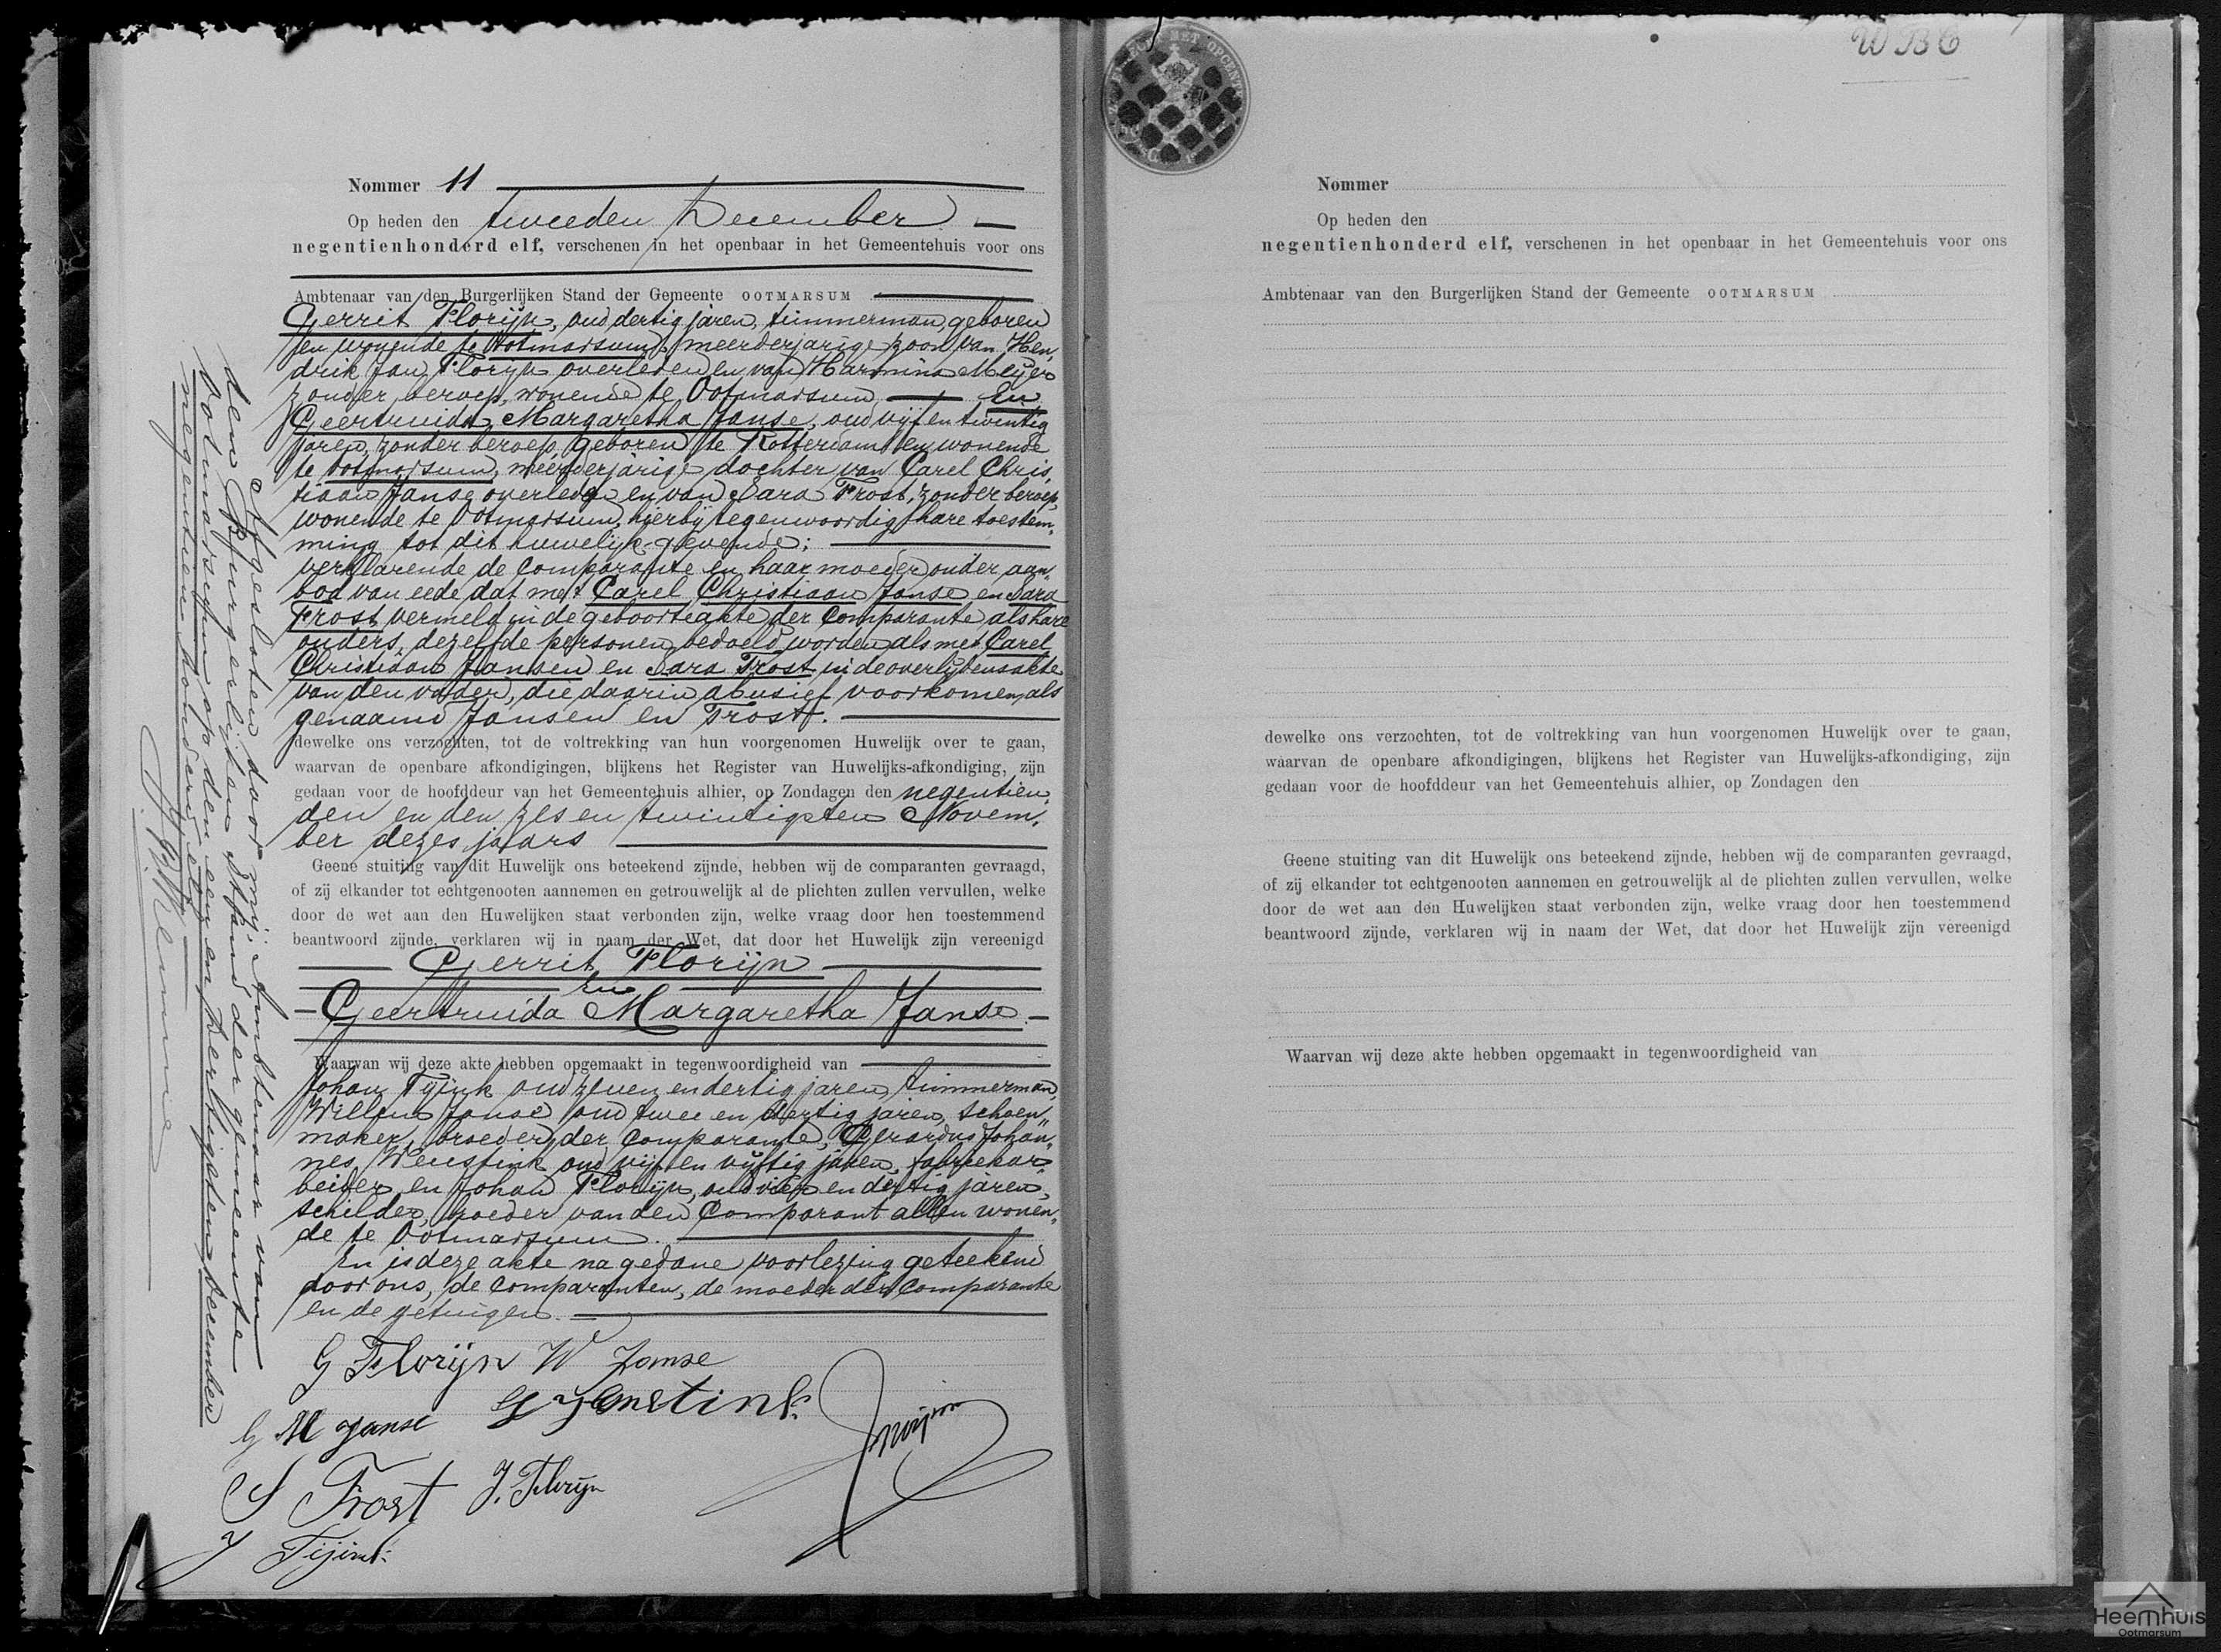 Nommer 11
Op heden den tweeden December
negentienhonderd elf, verschenen in het openbaar in het Gemeentehuis voor ons
Ambtenaar van den Burgerlijken Stand der Gemeente OOTMARSUM
Gerrit Florijn, oud dertig jaren, timmerman, geboren
en wonende te Ootmarsum, meerderjarige zoon van Hen„
drik Jan Florijn overleden en van Harmina Meijer
zonder beroep, wonende te Ootmarsum En
Geertruida Margaretha Janse, oud vijf en twintig
jaren, zonder beroep, geboren te Rotterdam en wonende
te Ootmarsum, meerderjarige dochter van Carel Chris„
tiaan Janse overleden en van Sara Frost, zonder beroep,
wonende te Ootmarsum, hierbij tegenwoordig hare toestem„
ming tot dit huwelijk gevende;
verklarende de comparante en haar moeder onder aan„
bod van eede dat met Carel Christiaan Janse en Sara
Frost vermeld in de geboorteakte der Comparante als hare
ouders, dezelfde personen bedoeld worden als met Carel
Christiaan Jansen en Sara Trost in de overlijdensakte
van den vader, die daarin abusief voorkomen als
genaamd Jansen en Trost.
dewelke ons verzochten, tot de voltrekking van hun voorgenomen Huwelijk over te gaan,
waarvan de openbare afkondigingen, blijkens het Register van Huwelijks-afkondiging, zijn
gedaan voor de hoofddeur van het Gemeentehuis alhier, op Zondagen den negentien„
den en den zes en twintigsten Novem„
ber dezes jaars
Geene stuiting van dit Huwelijk ons beteekend zijnde, hebben wij de comparanten gevraagd,
of zij elkander tot echtgenooten aannemen en getrouwelijk al de plichten zullen vervullen, welke
door de wet aan den Huwelijken staat verbonden zijn, welke vraag door hen toestemmend
beantwoord zijnde, verklaren wij in naam der Wet, dat door het Huwelijk zijn vereenigd
Gerrit Florijn
En
Geertruida Margaretha Janse
Waarvan wij deze akte hebben opgemaakt in tegenwoordigheid van
Johan Tijink oud zeven en dertig jaren, timmerman,
Willem Janse oud twee en dertig jaren, schoen„
maker, broeder der Comparante, Gerardus Johan„
nes oud vijf en vijftig jaren, fabriekar„
beider en Johan Florijn, oud vier en dertig jaren,
schilder, broeder van den Comparant allen wonen„
de te Ootmarsum.
En is deze akte na gedane voorlezing geteekend
door ons, de comparanten, de moeder der Comparante
en de getuigen.
G Florijn W Janse
G M Janse
S Frost J. Florijn
J Tijink
Afgesloten door mij, Ambtenaar van
den Burgerlijken Stand der gemeente
Ootmarsum op den een en dertigsten December
negentienhonderd elf
W B C
Nommer
Op heden den
negentienhonderd elf, verschenen in het openbaar in het Gemeentehuis voor ons
Ambtenaar van den Burgerlijken Stand der Gemeente OOTMARSUM
dewelke ons verzochten, tot de voltrekking van hun voorgenomen Huwelijk over te gaan,
waarvan de openbare afkondigingen, blijkens het Register van Huwelijks-afkondiging, zijn
gedaan voor de hoofddeur van het Gemeentehuis alhier, op Zondagen den
Geene stuiting van dit Huwelijk ons beteekend zijnde, hebben wij de comparanten gevraagd,
of zij elkander tot echtgenooten aannemen en getrouwelijk al de plichten zullen vervullen, welke
door de wet aan den Huwelijken staat verbonden zijn, welke vraag door hen toestemmend
beantwoord zijnde, verklaren wij in naam der Wet, dat door het Huwelijk zijn vereenigd
Waarvan wij deze akte hebben opgemaakt in tegenwoordigheid van
Heemhuis
Ootmarsum